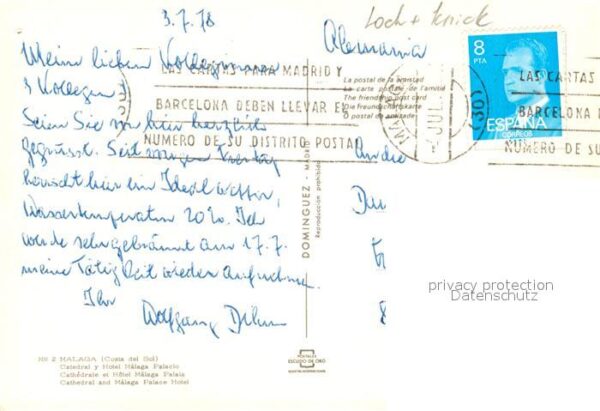 3.7.78
Loch + Knick
Alemania
Meine lieben Kolleginnen
& Kollegen
LAS CARTAS PARA MADRID Y
BARCELONA DEBEN LLEVAR EL
NUMERO DE SU DISTRITO POSTAL
Seien Sie von hier herzlich
gegrüsst. Seit
herrscht hier ein Idealwetter,
Wassertemperatur 20%. Ich
werde sehr gebräunt am 17.7.
meine Tätigkeit wieder aufnehmen.
Ihr
Wolfgang
La postal de la amistad
La carte postale de l'amitié
The friendship post card
Die freundschaftskarte
O postal da amizade
JUL
(30)
8
PTA
ESPAÑA
CORREOS
LAS CARTAS
BARCELONA D
NUMERO DE SU
DOMINGUEZ - MADR
Reproducción prohibida
privacy protection
Datenschutz
Nº 2 MALAGA (Costa del Sol)
Catedral y Hotel Málaga Palacio
Cathédrale et Hôtel Málaga Palais
Cathedral and Málaga Palace Hotel
POSTALES
ESCUDO DE ORO